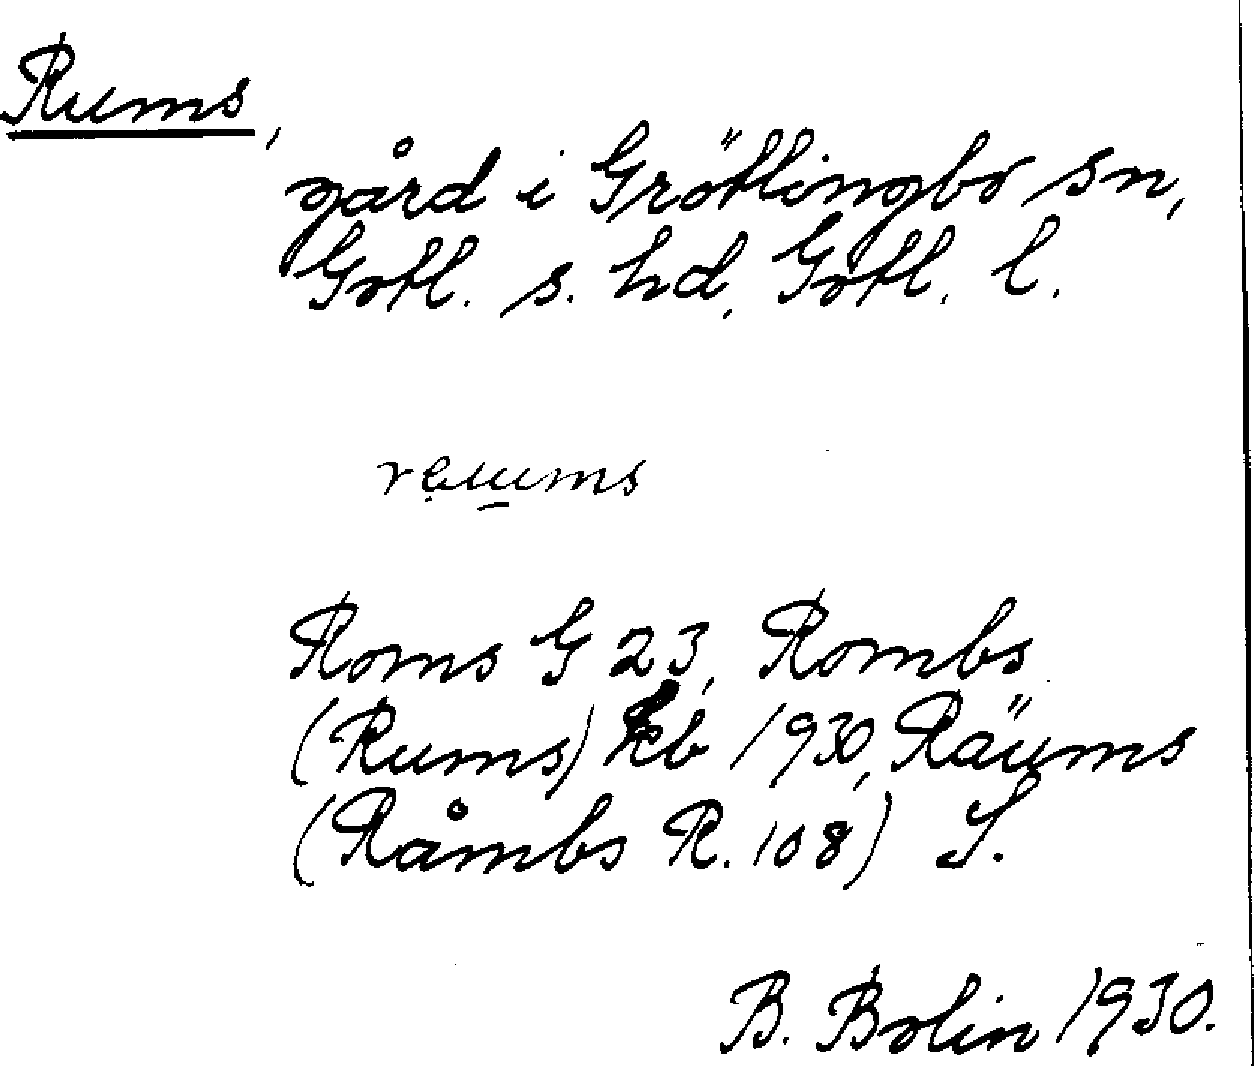 Rums,
gård i Grötlingbo sn,
Gotl. s. hd, Gotl. l.
rẹu̲ms
Roms G 23, Rombs
(Rums) kb 1930, Räums
(Råmbs R. 108) S.
B. Bolin 1930.